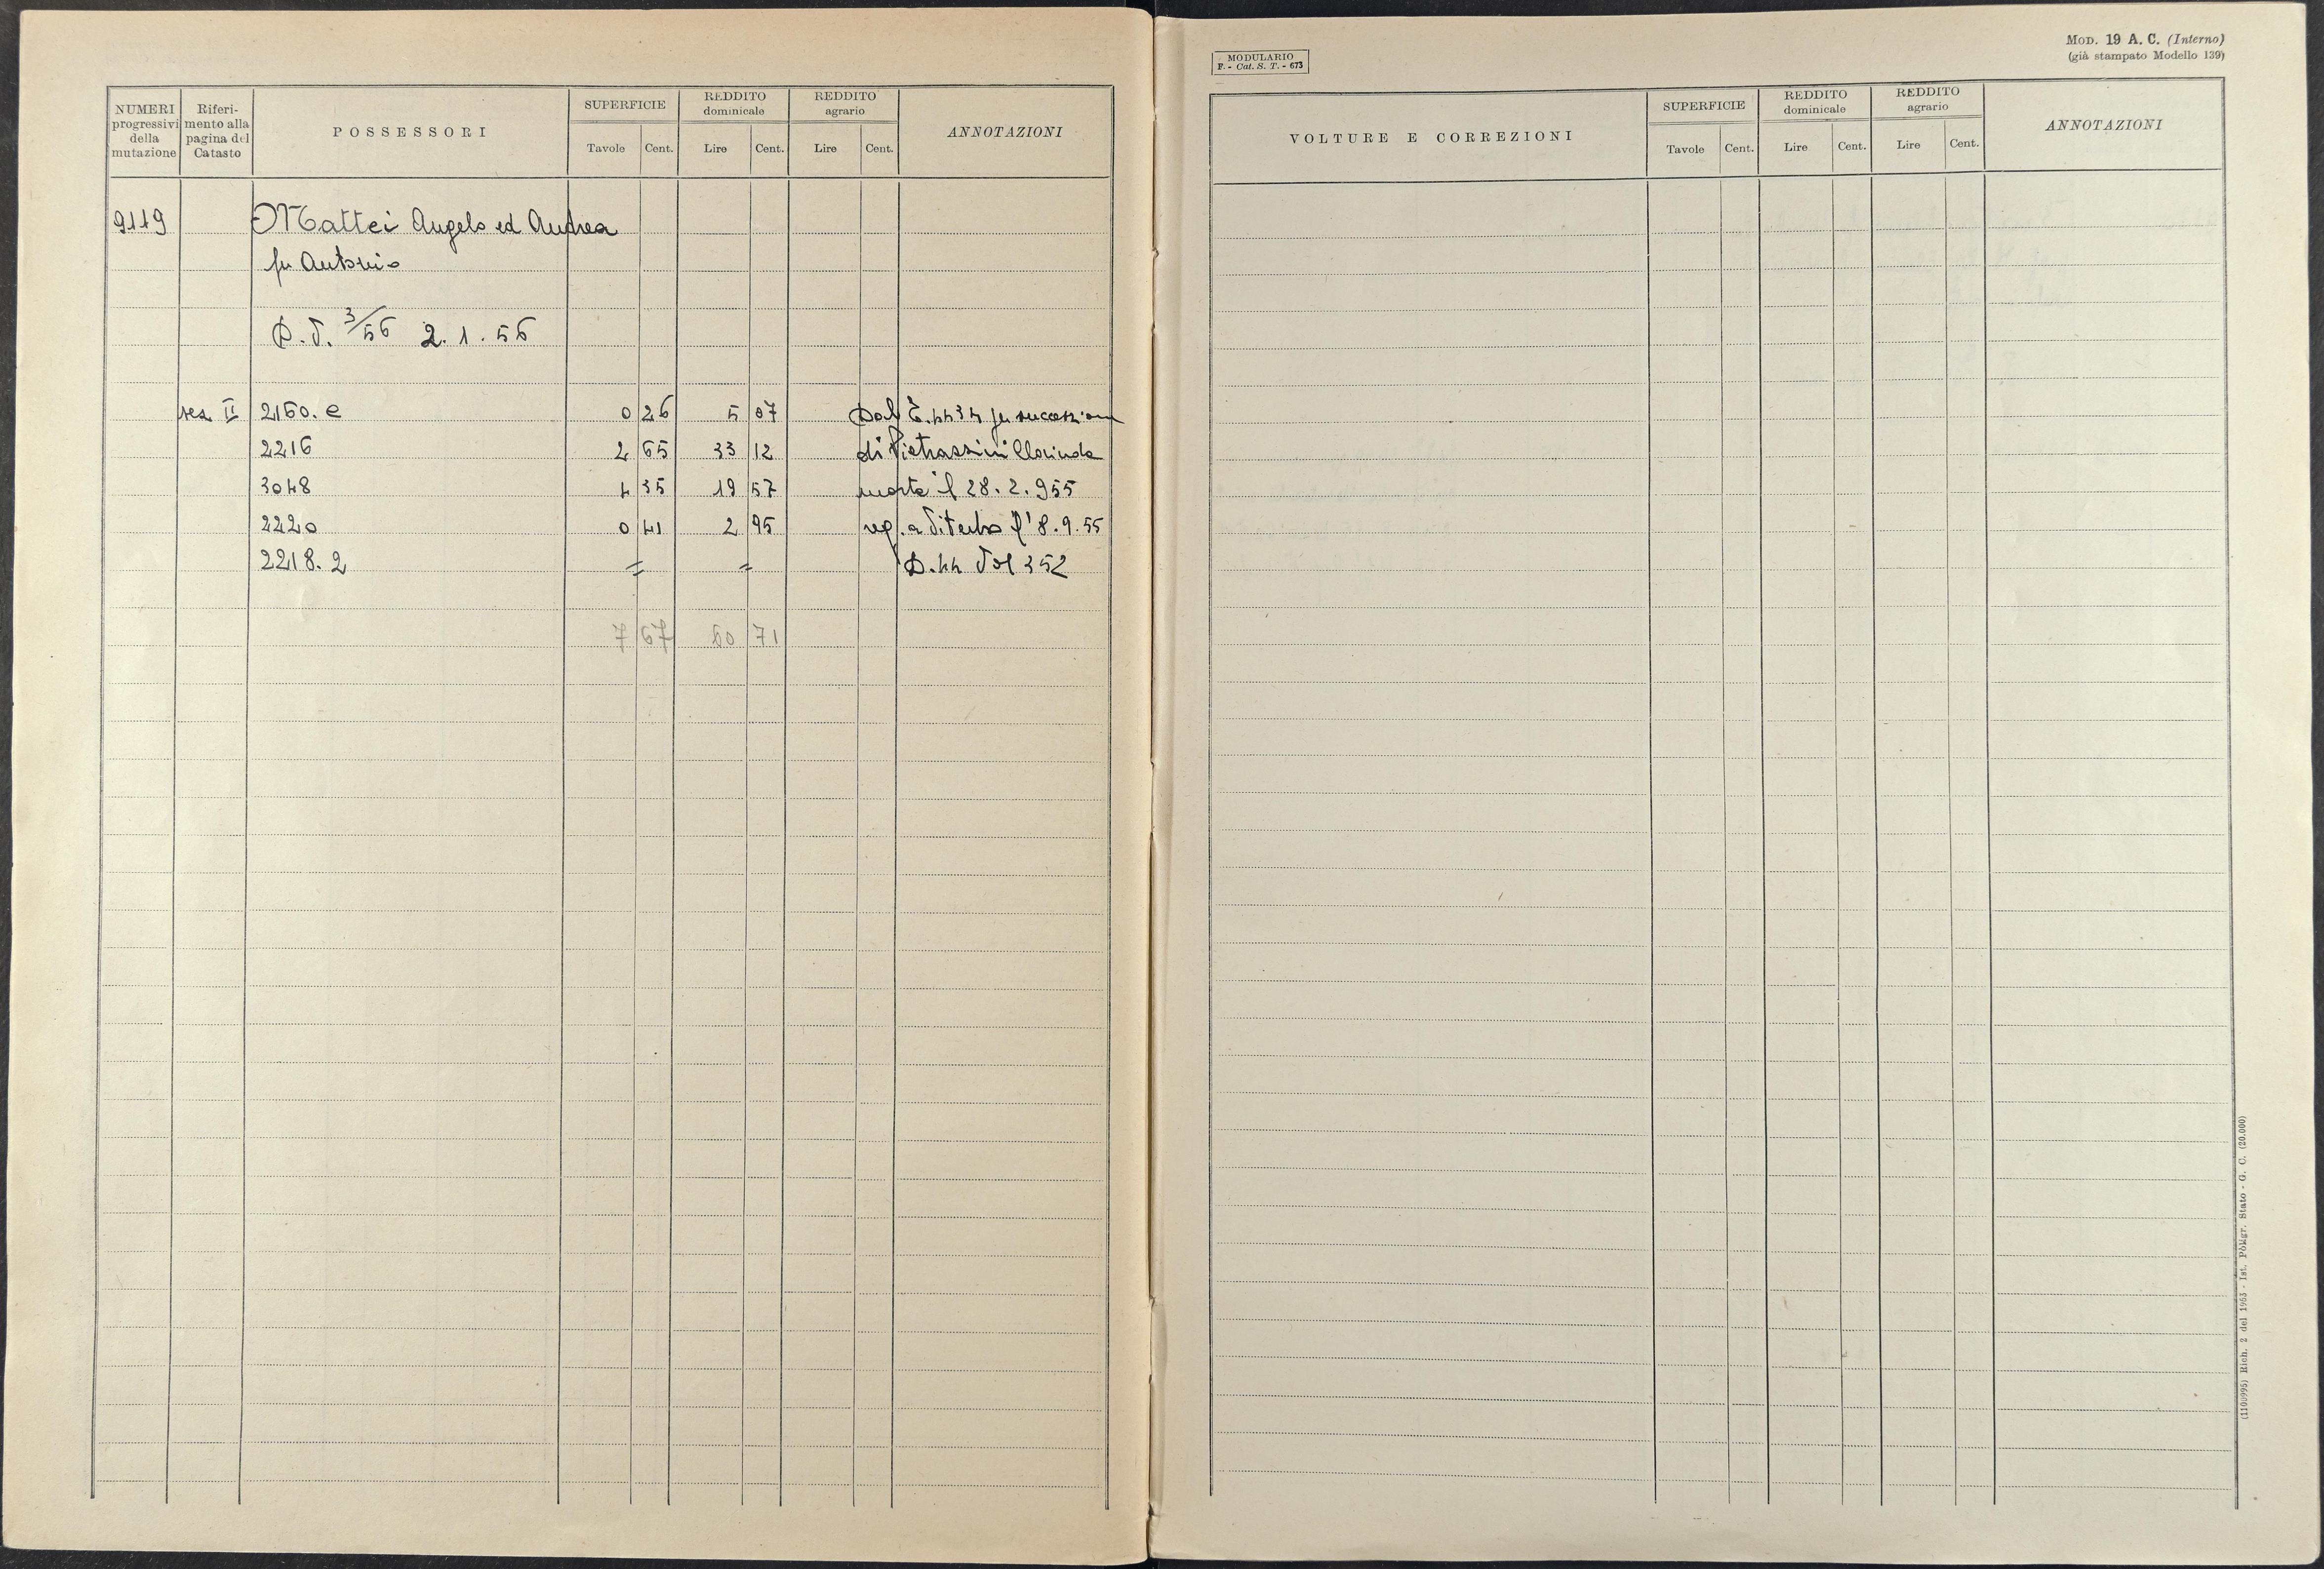 NUMERI progressivi della mutazione
Riferimento alla pagina del Catasto
POSSESSORI
SUPERFICIE
Tavole Cent.
REDDITO dominicale
Lire Cent.
REDDITO agrario
Lire Cent.
ANNOTAZIONI
9119 Mattei Angelo ed Andrea
fu Antonio
D.V. 3/56 2.1.56
sez II 2160.e 0 26 5 07 Dal 4434 per successione
2216 2 65 33 12 di Pietrassini Clorinda
3048 4 35 19 57 morta il 28.2.955
2220 0 41 2 95 reg. a Viterbo l'8.9.55
2218.2 = = D.44 Vol 352
7 67 60 71
MODULARIO
F. - Cat. S. T. - 673
MOD. 19 A. C. (Interno)
(già stampato Modello 139)
VOLTURE E CORREZIONI
SUPERFICIE
Tavole Cent.
REDDITO dominicale
Lire Cent.
REDDITO agrario
Lire Cent.
ANNOTAZIONI
(1100995) Rich. 2 del 1953 - Ist. Poligr. Stato - G. C. (20.000)